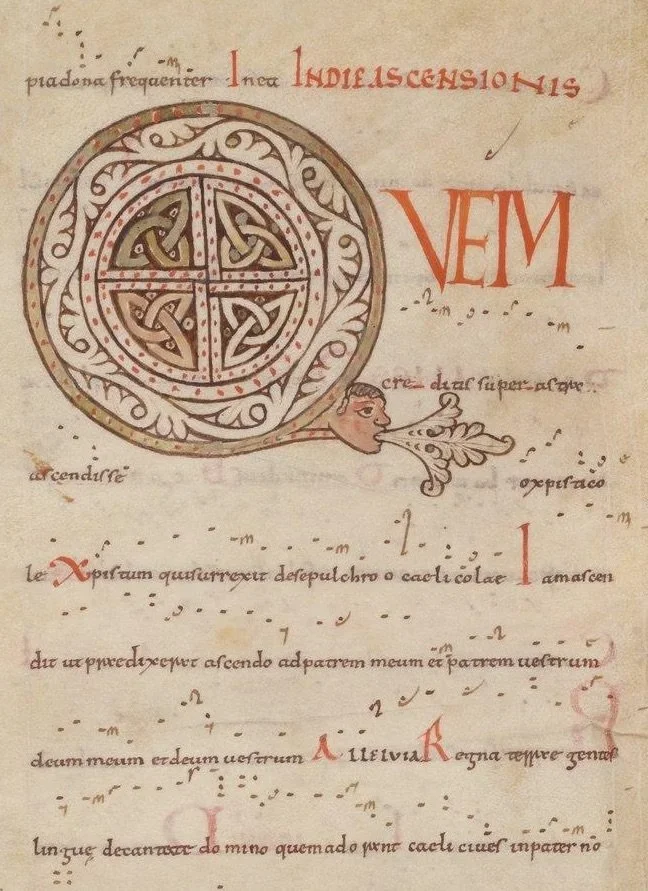 piadona frequenter In ea IN DIE ASCENSIONIS
QVEM
cre- ditis super astra
ascendisse o xpisticо
le Xpistum qui surrexit de sepulchro o caeli colae Iam ascen
dit ut praedixerat ascendo ad patrem meum et patrem uestrum
deum meum et deum uestrum ALLELVIA Regna terrae gentes
linguę decantate domino quem adorant caeli ciues in paterno